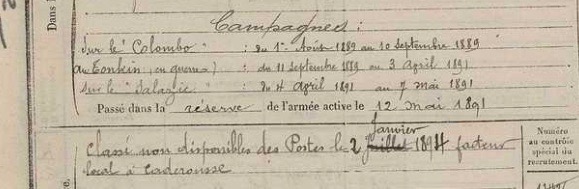 Dans
Campagnes :
Sur le "Colombo" : du 1er Août 1889 au 10 septembre 1889
au Tonkin (en guerre) : du 11 septembre 1889 au 3 April 1891
Sur le "Salazie" : du 4 April 1891 au 7 mai 1891
Passé dans la réserve de l'armée active le 12 mai 1891
Janvier
Classé non disponibles des Postes le 2 Juillet 1894 facteur
local à Caderousse
Numéro
au contrôle
spécial du
recrutement.